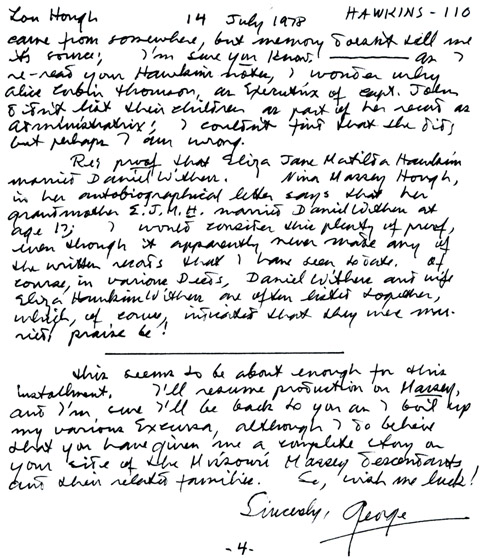 Lon Hough 14 July 1978 HAWKINS - 110
came from somewhere, but memory doesn't tell me
its source; I'm sure you know. ——— As I
re-read your Hawkins notes, I wonder why
Alice Corbin Thomson, as Executrix of Capt. John
didn't list their children as part of her record as
Administratrix; I couldn't find that she did,
but perhaps I am wrong.
Re: proof that Eliza Jane Matilda Hawkins
married Daniel Withers. Nina Massey Hough,
in her autobiographical letter says that her
grandmother E.J.M.H. married Daniel Withers at
age 17; I would consider this plenty of proof,
even though it apparently never made any of
the written records that I have seen to date. Of
course, in various Deeds, Daniel Withers and wife
Eliza Hawkins Withers are often listed together,
which, of course, indicated that they were mar-
ried, praise be!
This seems to be about enough for this
installment. I'll resume production on Massey,
and I'm sure I'll be back to you as I boil up
my various Excursa, although I do believe
that you have given me a complete story on
your side of the Missouri Massey descendants
and their related families. So, wish me luck!
Sincerely, George
-4-